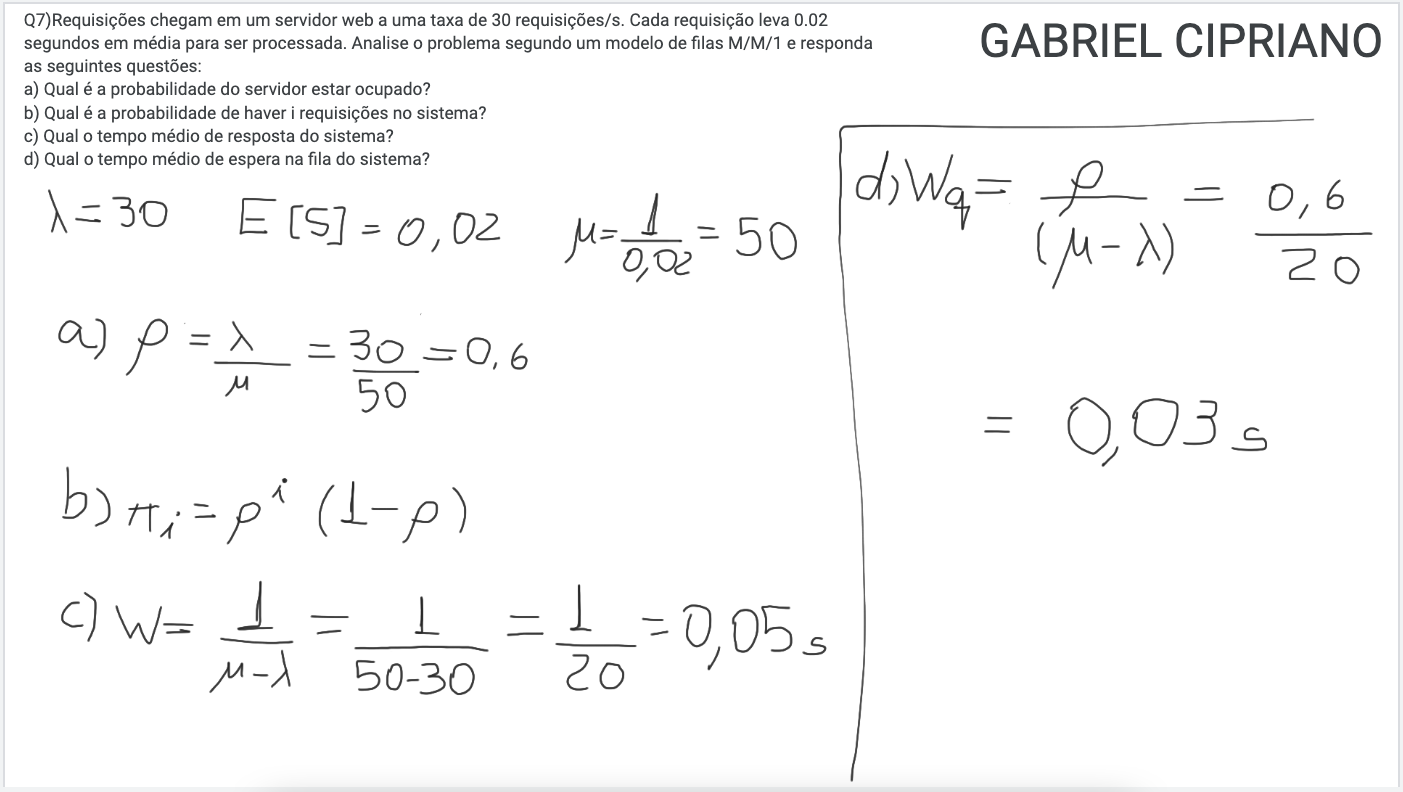 Q7)Requisições chegam em um servidor web a uma taxa de 30 requisições/s. Cada requisição leva 0.02
segundos em média para ser processada. Analise o problema segundo um modelo de filas M/M/1 e responda
as seguintes questões:
a) Qual é a probabilidade do servidor estar ocupado?
b) Qual é a probabilidade de haver i requisições no sistema?
c) Qual o tempo médio de resposta do sistema?
d) Qual o tempo médio de espera na fila do sistema?
GABRIEL CIPRIANO
λ = 30 E [S] = 0,02 μ = 1/0,02 = 50
a) ρ = λ/μ = 30/50 = 0,6
b) π_i = ρ^i (1-ρ)
c) W = 1/(μ-λ) = 1/(50-30) = 1/20 = 0,05 s
d) Wq = ρ/(μ-λ) = 0,6/20
= 0,03 s